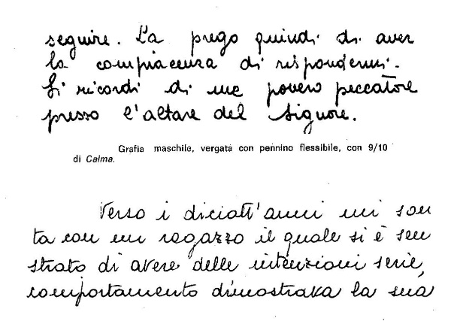 seguire. La prego quindi di aver
la compiacenza di rispondermi.
Si ricordi di me povero peccatore
presso l'altare del Signore.
Grafia maschile, vergata con pennino flessibile, con 9/10
di Calma.
Verso i diciott'anni mi son
ta con un ragazzo il quale si è
strato di avere delle intenzioni serie,
comportamento dimostrava la sua